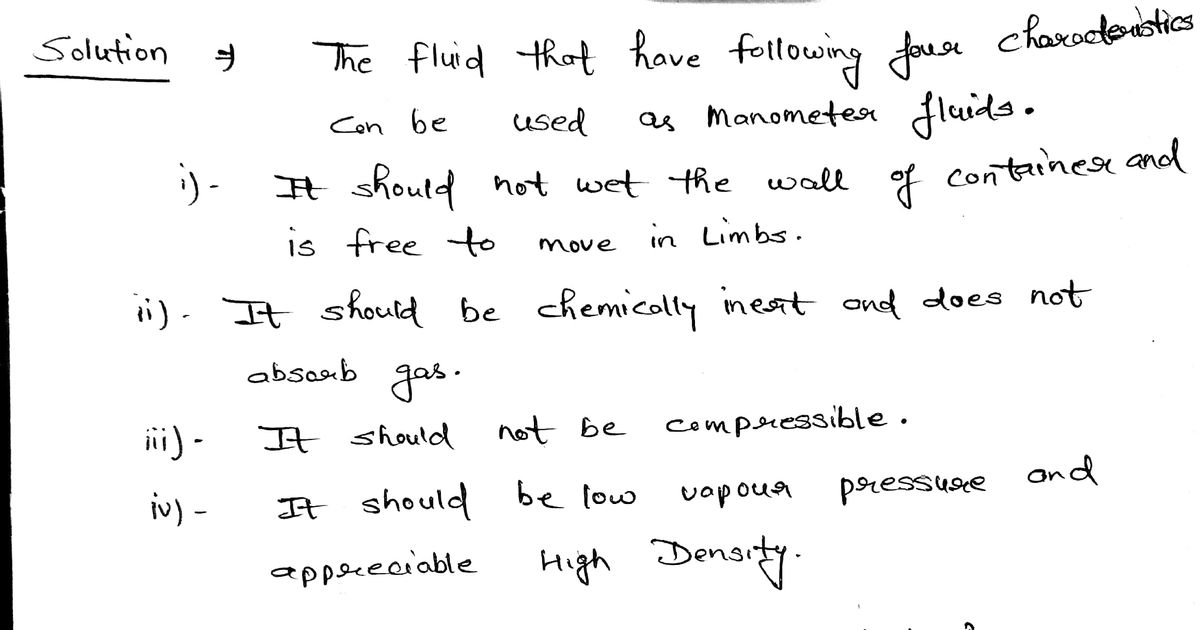 Solution ⇒ The fluid that have following four characteristics
can be used as Manometer fluids.
i) - It should not wet the wall of container and
is free to move in Limbs.
ii) - It should be chemically inert and does not
absorb gas.
iii) - It should not be compressible.
iv) - It should be low vapour pressure and
appreciable High Density.